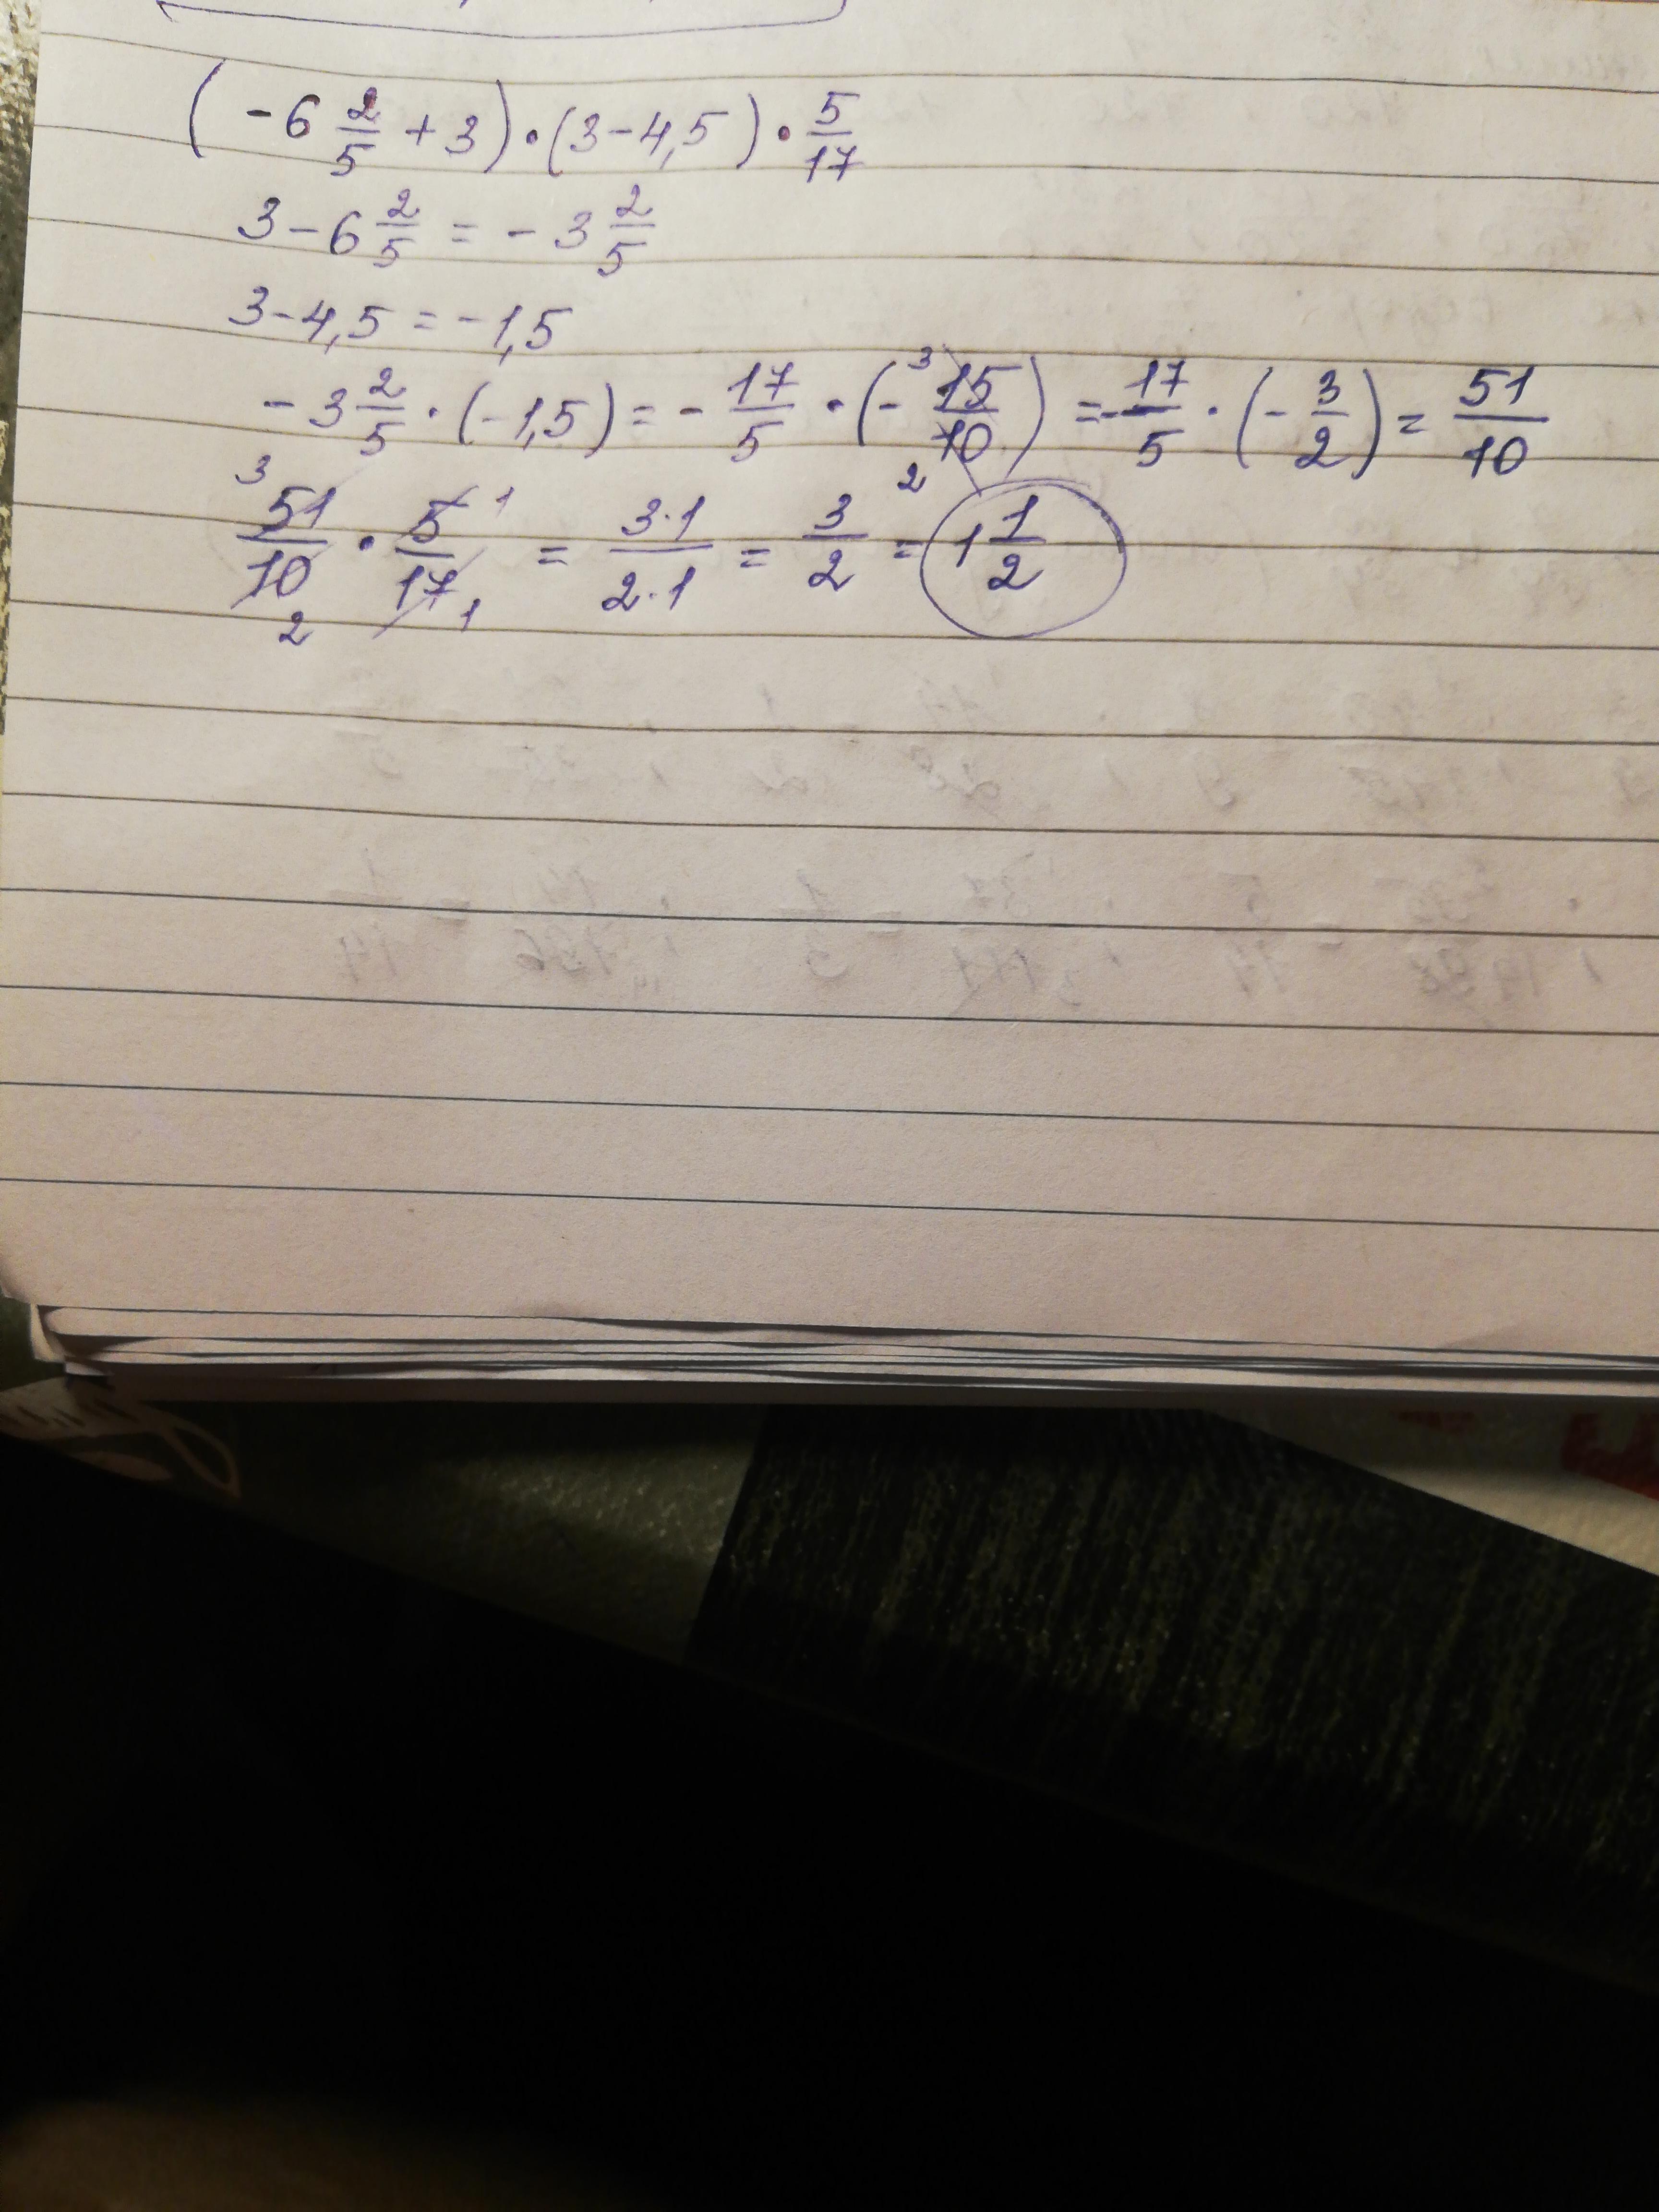 (-6 2/5 + 3) · (3 - 4,5) · 5/17
3 - 6 2/5 = - 3 2/5
3 - 4,5 = - 1,5
- 3 2/5 · (-1,5) = - 17/5 · (- 15/10) = - 17/5 · (- 3/2) = 51/10
51/10 · 5/17 = 3·1/2·1 = 3/2 = 1 1/2